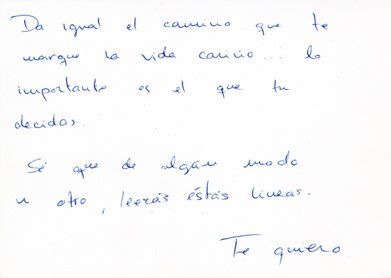 Da igual el camino que te
marque la vida cariño... lo
importante es el que tu
decidas.
Sé que de algún modo
u otro, leerás éstas lineas.
Te quiero